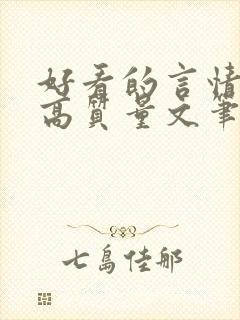 好看的言情
高质量文笔
七岛佳那